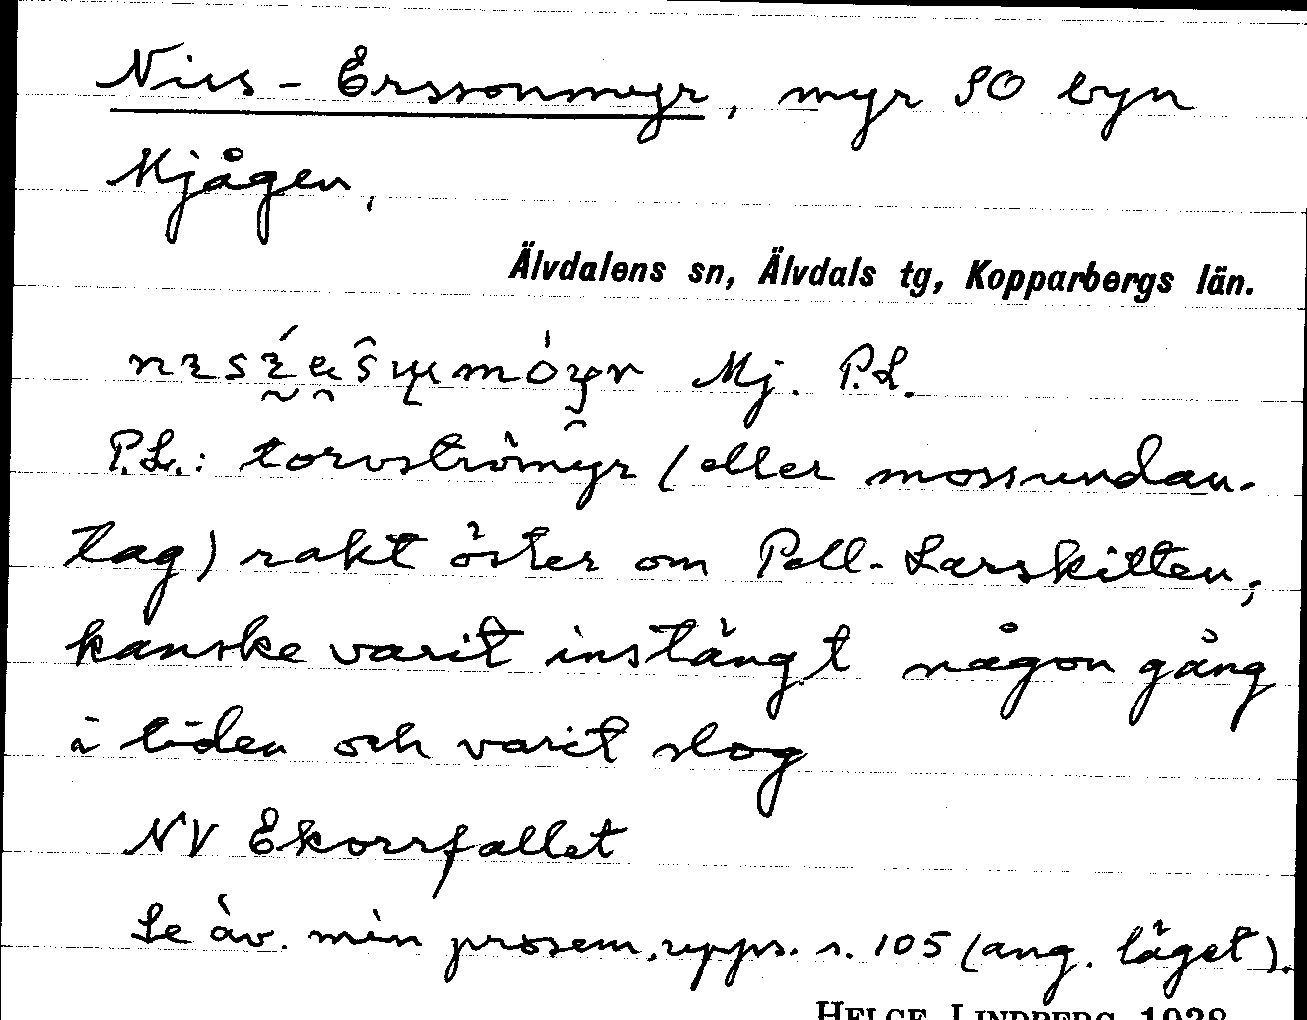 Niss-Erssonmyr, myr SO byn
Mjågen,
Älvdalens sn, Älvdals tg, Kopparbergs län.
Mj. P.L.
P.L.: torvströmyr (eller mossundan-
tag) rakt öster om Pell-Larskitten,
kanske varit instängt någon gång
i tiden och varit slog
NV Ekorrfallet
Se äv. min prosem.upps. s. 105 (ang. läget).
HELGE LINDBERG 1938